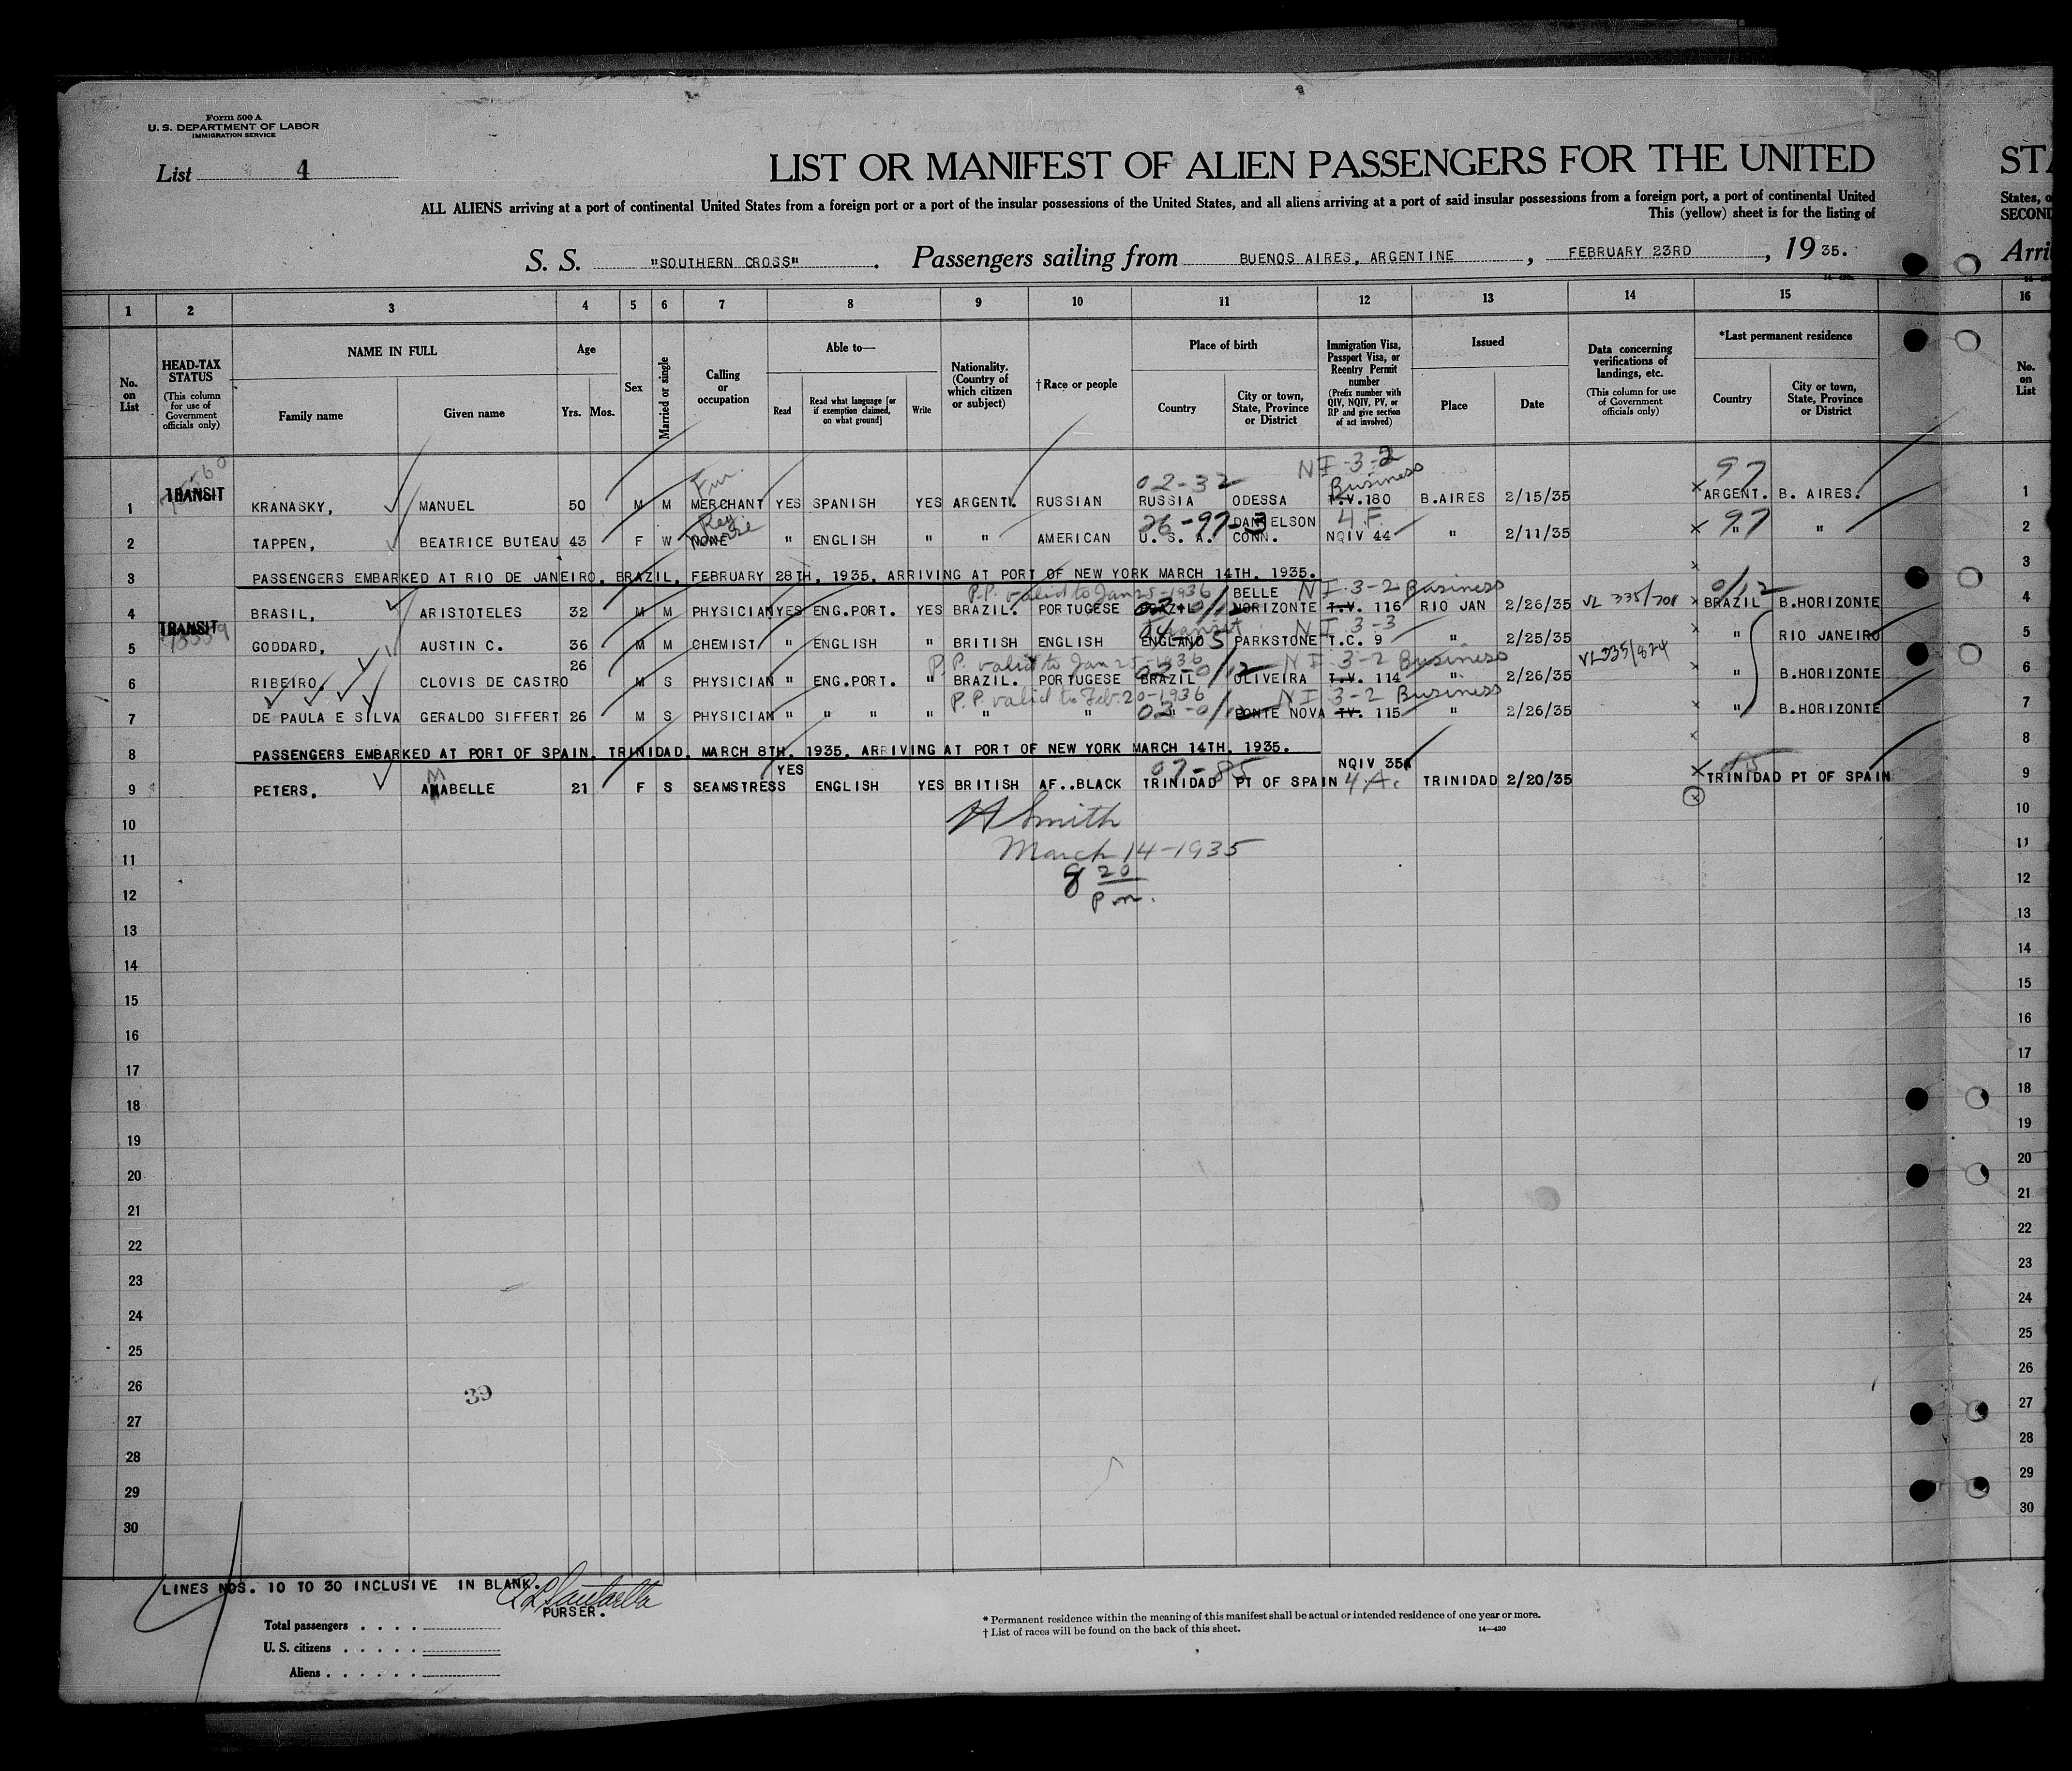 Form 500 A
U. S. DEPARTMENT OF LABOR
IMMIGRATION SERVICE
List 4
LIST OR MANIFEST OF ALIEN PASSENGERS FOR THE UNITED
ALL ALIENS arriving at a port of continental United States from a foreign port or a port of the insular possessions of the United States, and all aliens arriving at a port of said insular possessions from a foreign port, a port of continental United
This (yellow) sheet is for the listing of
S. S. "SOUTHERN CROSS" . Passengers sailing from BUENOS AIRES, ARGENTINE , FEBRUARY 23RD , 19 35.
STA
States, o
SECOND
Arri
1 2 3 4 5 6 7 8 9 10 11 12 13 14 15 16
No. on List
HEAD-TAX STATUS
(This column for use of Government officials only)
NAME IN FULL
Family name
Given name
Age
Yrs. Mos.
Sex
Married or single
Calling or occupation
Able to—
Read
Read what language [or if exemption claimed, on what ground]
Write
Nationality. (Country of which citizen or subject)
† Race or people
Place of birth
Country
City or town, State, Province or District
Immigration Visa, Passport Visa, or Reentry Permit number
(Prefix number with QIV, NQIV, PV, or RP and give section of act involved)
Issued
Place
Date
Data concerning verifications of landings, etc.
(This column for use of Government officials only)
*Last permanent residence
Country
City or town, State, Province or District
No. on List
02-32 NI-3-2 Business 97
1 TRANSIT KRANASKY, MANUEL 50 M M MERCHANT YES SPANISH YES ARGENT. RUSSIAN RUSSIA ODESSA T.V.180 B.AIRES 2/15/35 ARGENT. B. AIRES. 1
26-97-3 DANIELSON 4F 97
2 TAPPEN, BEATRICE BUTEAU 43 F W NONE " ENGLISH " " AMERICAN U. S. A. CONN. NQIV 44 " 2/11/35 " " 2
3 PASSENGERS EMBARKED AT RIO DE JANEIRO, BRAZIL, FEBRUARY 28TH, 1935, ARRIVING AT PORT OF NEW YORK MARCH 14TH, 1935. 3
P.P. valid to Jan 25-1936 BELLE NI-3-2 Business 0/12
4 BRASIL, ARISTOTELES 32 M M PHYSICIAN YES ENG.PORT. YES BRAZIL. PORTUGESE BRAZIL HORIZONTE T.V. 116 RIO JAN 2/26/35 VL 335/708 BRAZIL B.HORIZONTE 4
Transit NI 3-3
5 TRANSIT GODDARD, AUSTIN C. 36 M M CHEMIST " ENGLISH " BRITISH ENGLISH ENGLAND PARKSTONE T.C. 9 " 2/25/35 " RIO JANEIRO 5
P.P. valid to Jan 25-1936 NI 3-2 Business VL 335/824
6 RIBEIRO, CLOVIS DE CASTRO 26 M S PHYSICIAN " ENG.PORT. " BRAZIL. PORTUGESE BRAZIL OLIVEIRA T.V. 114 " 2/26/35 " B.HORIZONTE 6
P.P. valid to Feb 20-1936 NI 3-2 Business
7 DE PAULA E SILVA GERALDO SIFFERT 26 M S PHYSICIAN " " " " " " PONTE NOVA TV. 115 " 2/26/35 " B.HORIZONTE 7
8 PASSENGERS EMBARKED AT PORT OF SPAIN, TRINIDAD, MARCH 8TH, 1935, ARRIVING AT PORT OF NEW YORK MARCH 14TH, 1935. 8
07-85 NQIV 35
9 PETERS, AMABELLE 21 F S SEAMSTRESS YES ENGLISH YES BRITISH AF..BLACK TRINIDAD PT OF SPAIN 4A. TRINIDAD 2/20/35 TRINIDAD PT OF SPAIN 9
10 H Smith 10
11 March 14-1935 11
12 8 20 12
pm.
13 13
14 14
15 15
16 16
17 17
18 18
19 19
20 20
21 21
22 22
23 23
24 24
25 25
26 39 26
27 27
28 28
29 29
30 30
LINES NOS. 10 TO 30 INCLUSIVE IN BLANK.
PURSER.
Total passengers
U. S. citizens
Aliens
* Permanent residence within the meaning of this manifest shall be actual or intended residence of one year or more.
† List of races will be found on the back of this sheet. 14—430